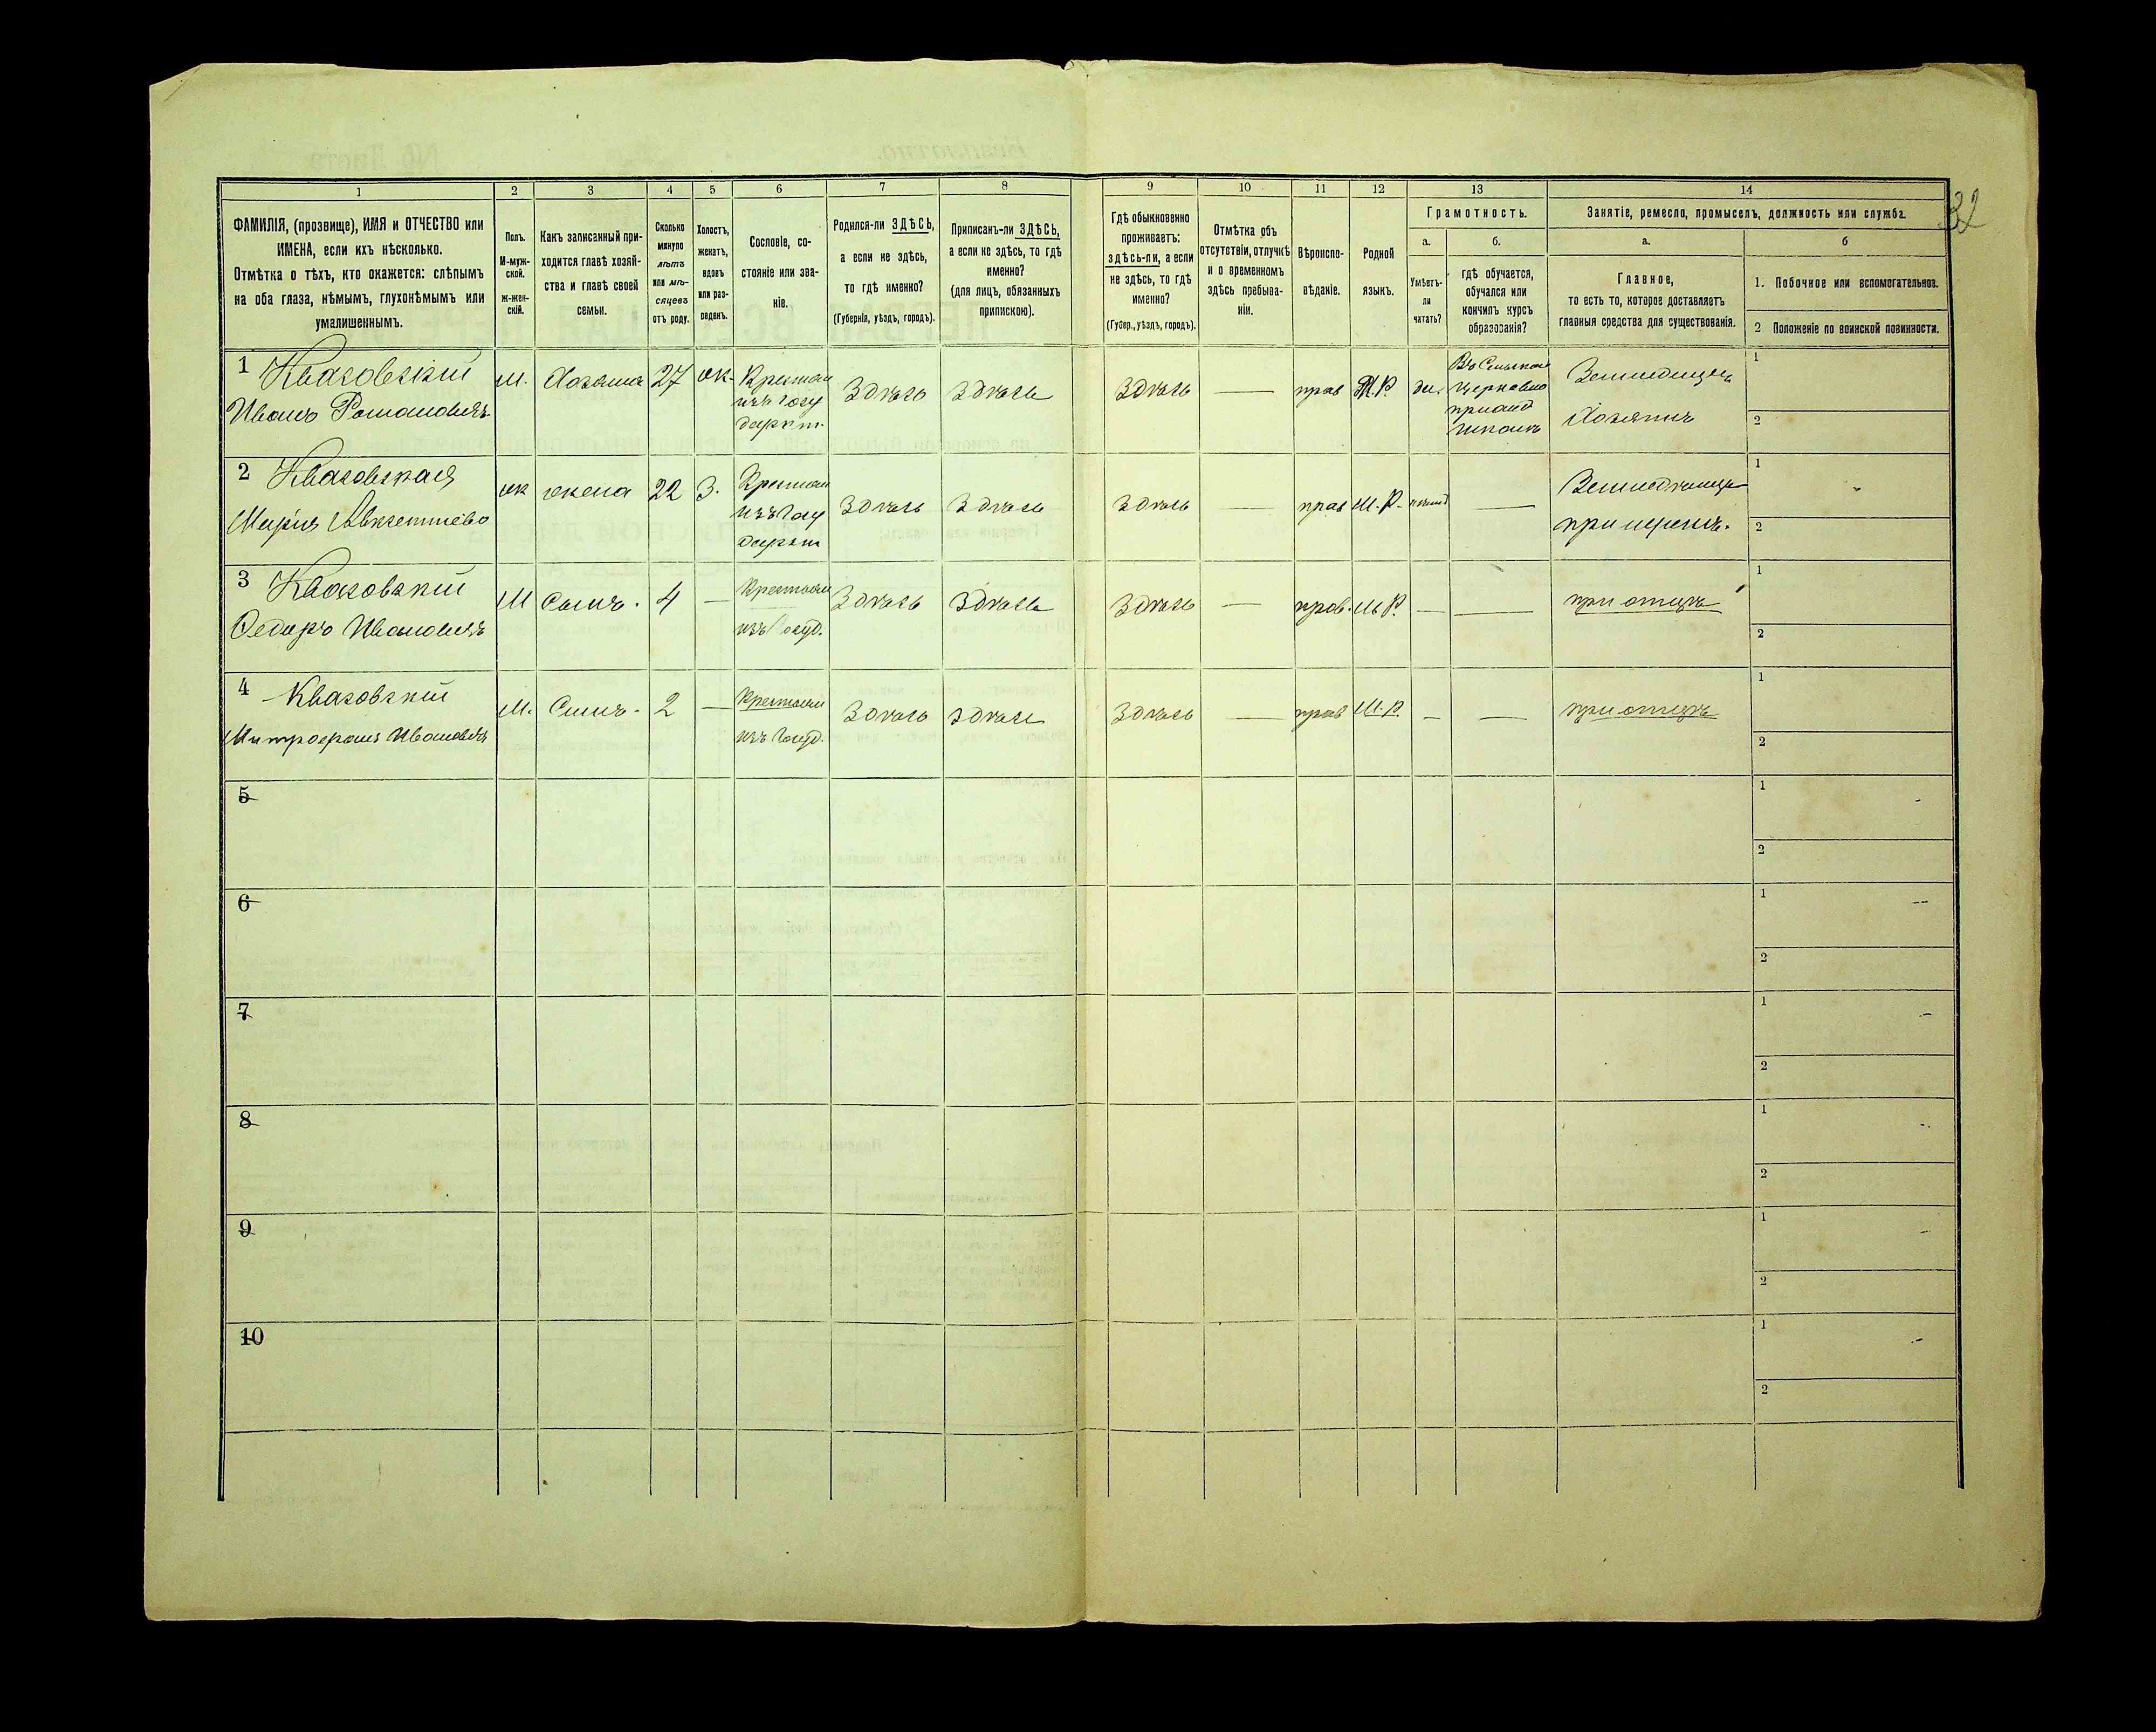 32
1 2 3 4 5 6 7 8 9 10 11 12 13 14
ФАМИЛІЯ, (прозвище), ИМЯ и ОТЧЕСТВО или
ИМЕНА, если ихъ нѣсколько.
Отмѣтка о тѣхъ, кто окажется: слѣпымъ
на оба глаза, нѣмымъ, глухонѣмымъ или
умалишеннымъ.
Полъ.
М-муж-
ской.
ж-жен-
скій.
Какъ записанный при-
ходится главѣ хозяй-
ства и главѣ своей
семьи.
Сколько
минуло
лѣтъ
или мѣ-
сяцевъ
отъ роду.
Холостъ,
женатъ,
вдовъ
или раз-
веденъ.
Сословіе, со-
стояніе или зва-
ніе.
Родился-ли ЗДѢСЬ,
а если не здѣсь,
то гдѣ именно?
(Губернія, уѣздъ, городъ).
Приписанъ-ли ЗДѢСЬ,
а если не здѣсь, то гдѣ
именно?
(для лицъ, обязанныхъ
припискою).
Гдѣ обыкновенно
проживаетъ:
здѣсь-ли, а если
не здѣсь, то гдѣ
именно?
(Губер., уѣздъ, городъ).
Отмѣтка объ
отсутствіи, отлучкѣ
и о временномъ
здѣсь пребыва-
ніи.
Вѣроиспо-
вѣданіе.
Родной
языкъ.
Грамотность.
а.
Умѣетъ-
ли
читать?
б.
гдѣ обучается,
обучался или
кончилъ курсъ
образованія?
Занятіе, ремесло, промыселъ, должность или служба.
а.
Главное,
то есть то, которое доставляетъ
главныя средства для существованія.
б
1. Побочное или вспомогательное.
2 Положеніе по воинской повинности.
1 Квасовскій
Иванъ Романовичъ
м.
Хозяинъ
27
ж.
Крестьян
изъ Госу
дарст.
Здѣсь
Здѣсь
Здѣсь
—
прав
М.Р.
да.
Въ Сельской
Церковно
приход
школѣ
Земледѣлецъ
Хозяинъ
1
2
2 Квасовская
Марія
ж
жена
22
З.
Крестьян
изъ Госу
дарст
Здѣсь
Здѣсь
Здѣсь
—
прав
М.Р.
—
Земледѣлица
при мужѣ.
1
2
3 Квасовскій
Федоръ Ивановичъ
М
Сынъ.
4
—
Крестьян
изъ Госуд.
Здѣсь
Здѣсь
Здѣсь
—
прав.
М.Р.
—
—
при отцѣ
1
2
4 Квасовскій
Митрофанъ Ивановичъ
М.
Сынъ.
2
—
Крестьян
изъ Госуд.
Здѣсь
Здѣсь
Здѣсь
—
прав
М.Р.
—
—
при отцѣ
1
2
5
1
2
6
1
2
7
1
2
8
1
2
9
1
2
10
1
2